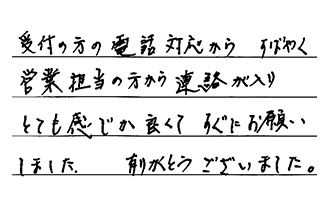 受付の方の電話対応から すばやく
営業担当の方から連絡が入り
とても感じが良くて すぐにお願い
しました. 有りがとうございました。